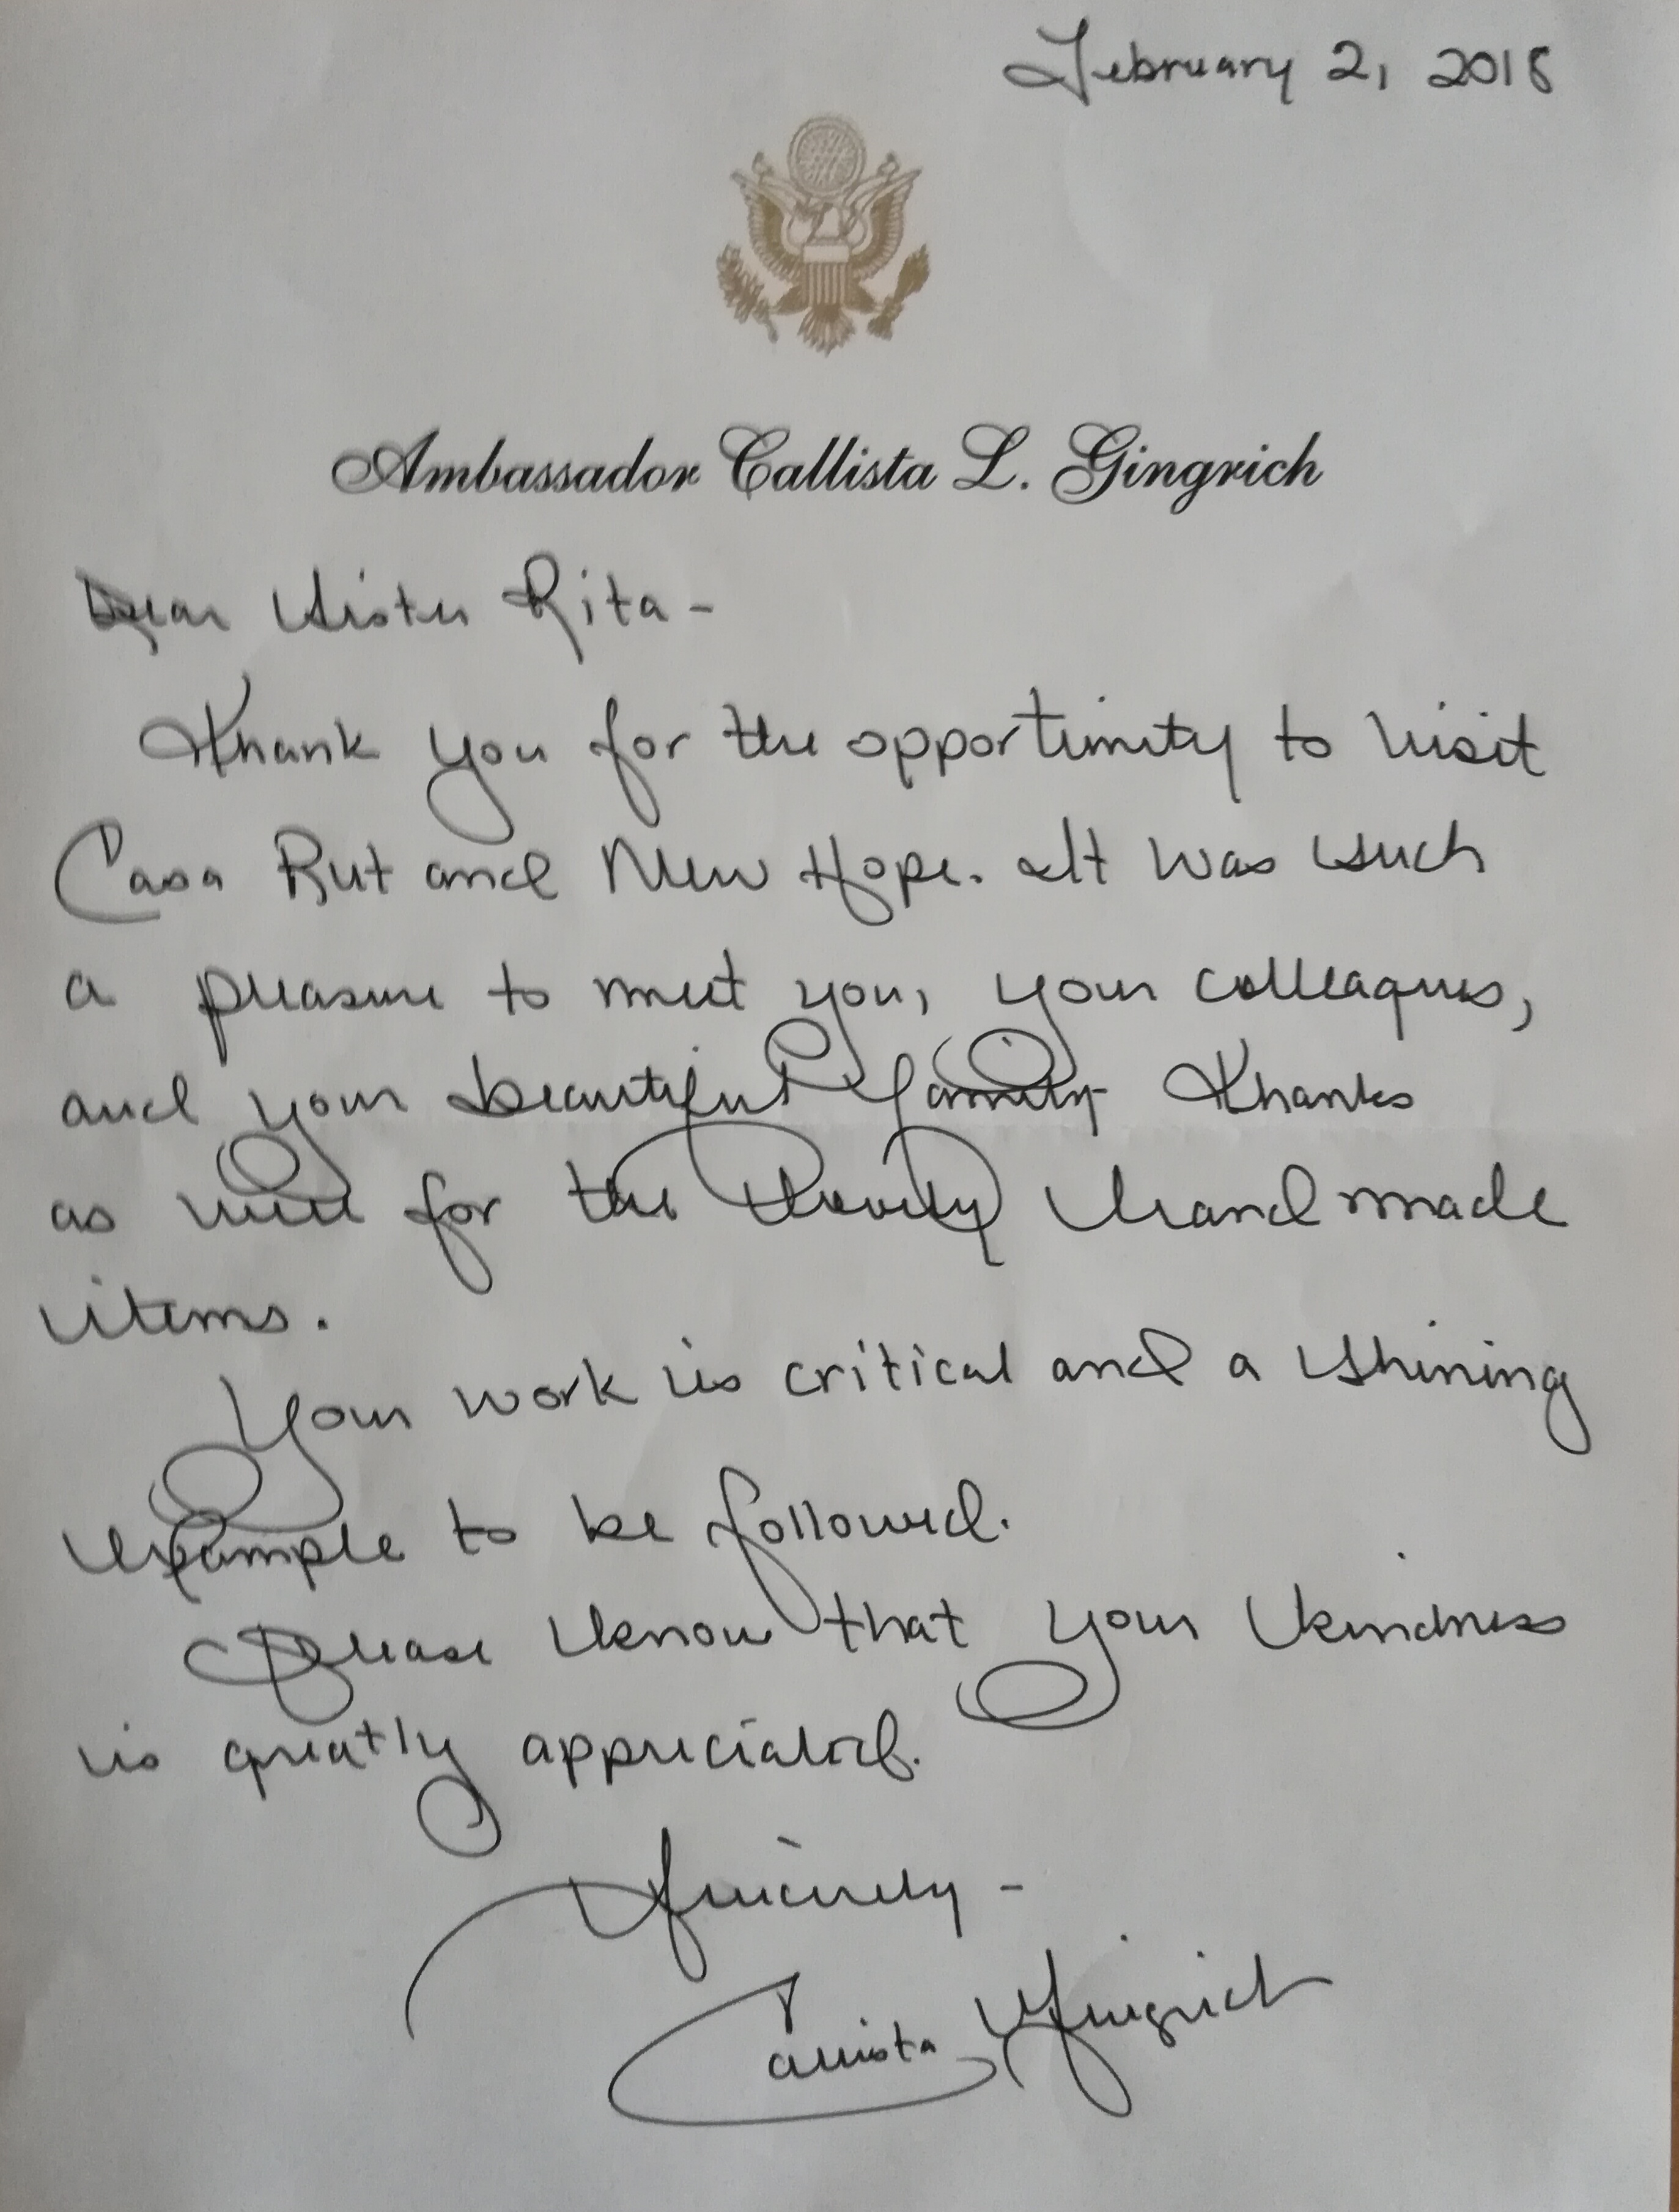 February 2, 2018
Ambassador Callista L. Gingrich
Dear Sister Rita -
Thank you for the opportunity to visit
Casa Rut and New Hope. It was such
a pleasure to meet you, your colleagues,
and your beautiful family. Thanks
as well for the lovely handmade
items.
Your work is critical and a shining
example to be followed.
Please know that your kindness
is greatly appreciated.
Sincerely -
Callista Gingrich